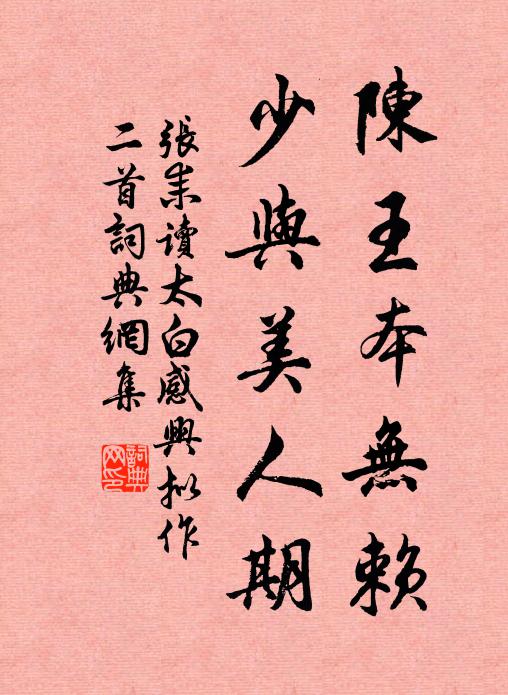 陳王本無賴
少與美人期
張耒讀太白感興拟作
二首詞典網集
詞典
网印